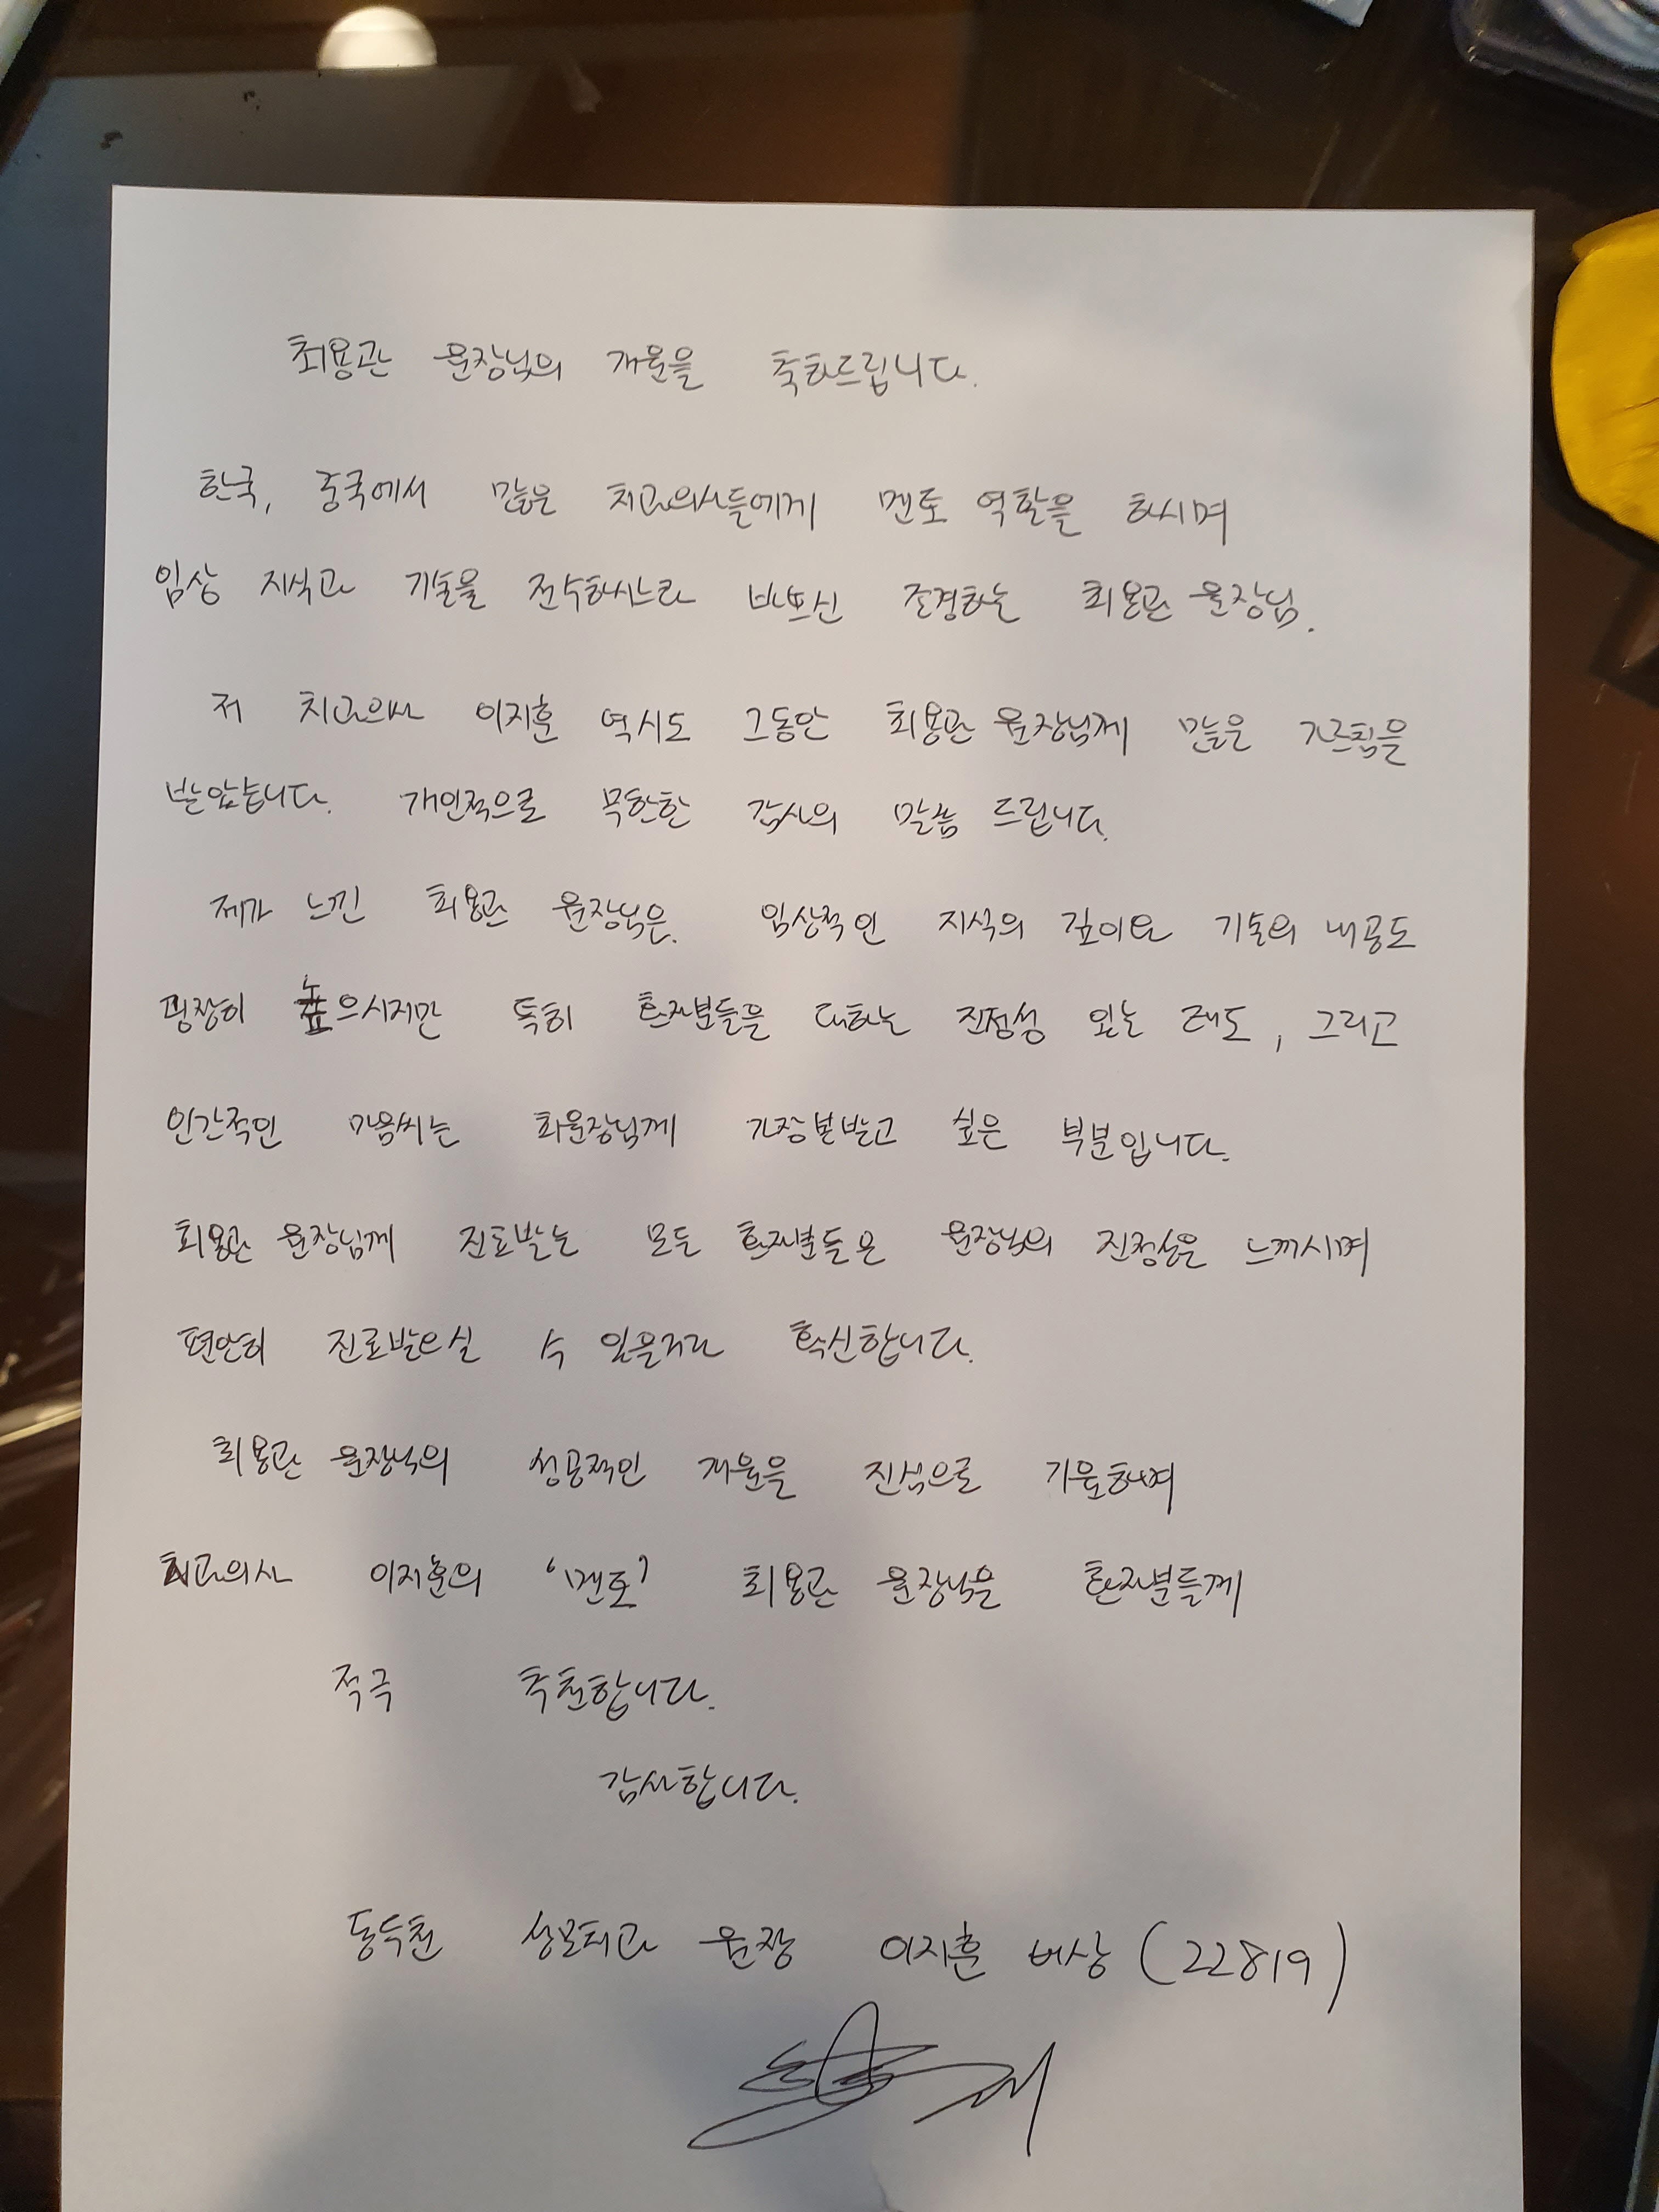 최용관 원장님의 개원을 축하드립니다.
한국, 중국에서 많은 치과의사들에게 멘토 역할을 하시며
임상 지식과 기술을 전수하시느라 바쁘신 존경하는 최용관 원장님.
저 치과의사 이지훈 역시도 그동안 최용관 원장님께 많은 가르침을
받았습니다. 개인적으로 무한한 감사의 말씀 드립니다.
제가 느낀 최용관 원장님은. 임상적인 지식의 깊이와 기술의 내공도
굉장히 높으시지만 특히 환자분들을 대하는 진정성 있는 태도, 그리고
인간적인 마음씨는 최원장님께 가장 본받고 싶은 부분입니다.
최용관 원장님께 진료받는 모든 환자분들은 원장님의 진정성을 느끼시며
편안히 진료받으실 수 있을거라 확신합니다.
최용관 원장님의 성공적인 개원을 진심으로 기원하며
치과의사 이지훈의 '멘토' 최용관 원장님을 환자분들께
적극 추천합니다.
감사합니다.
동두천 성모치과 원장 이지훈 배상 (22819)